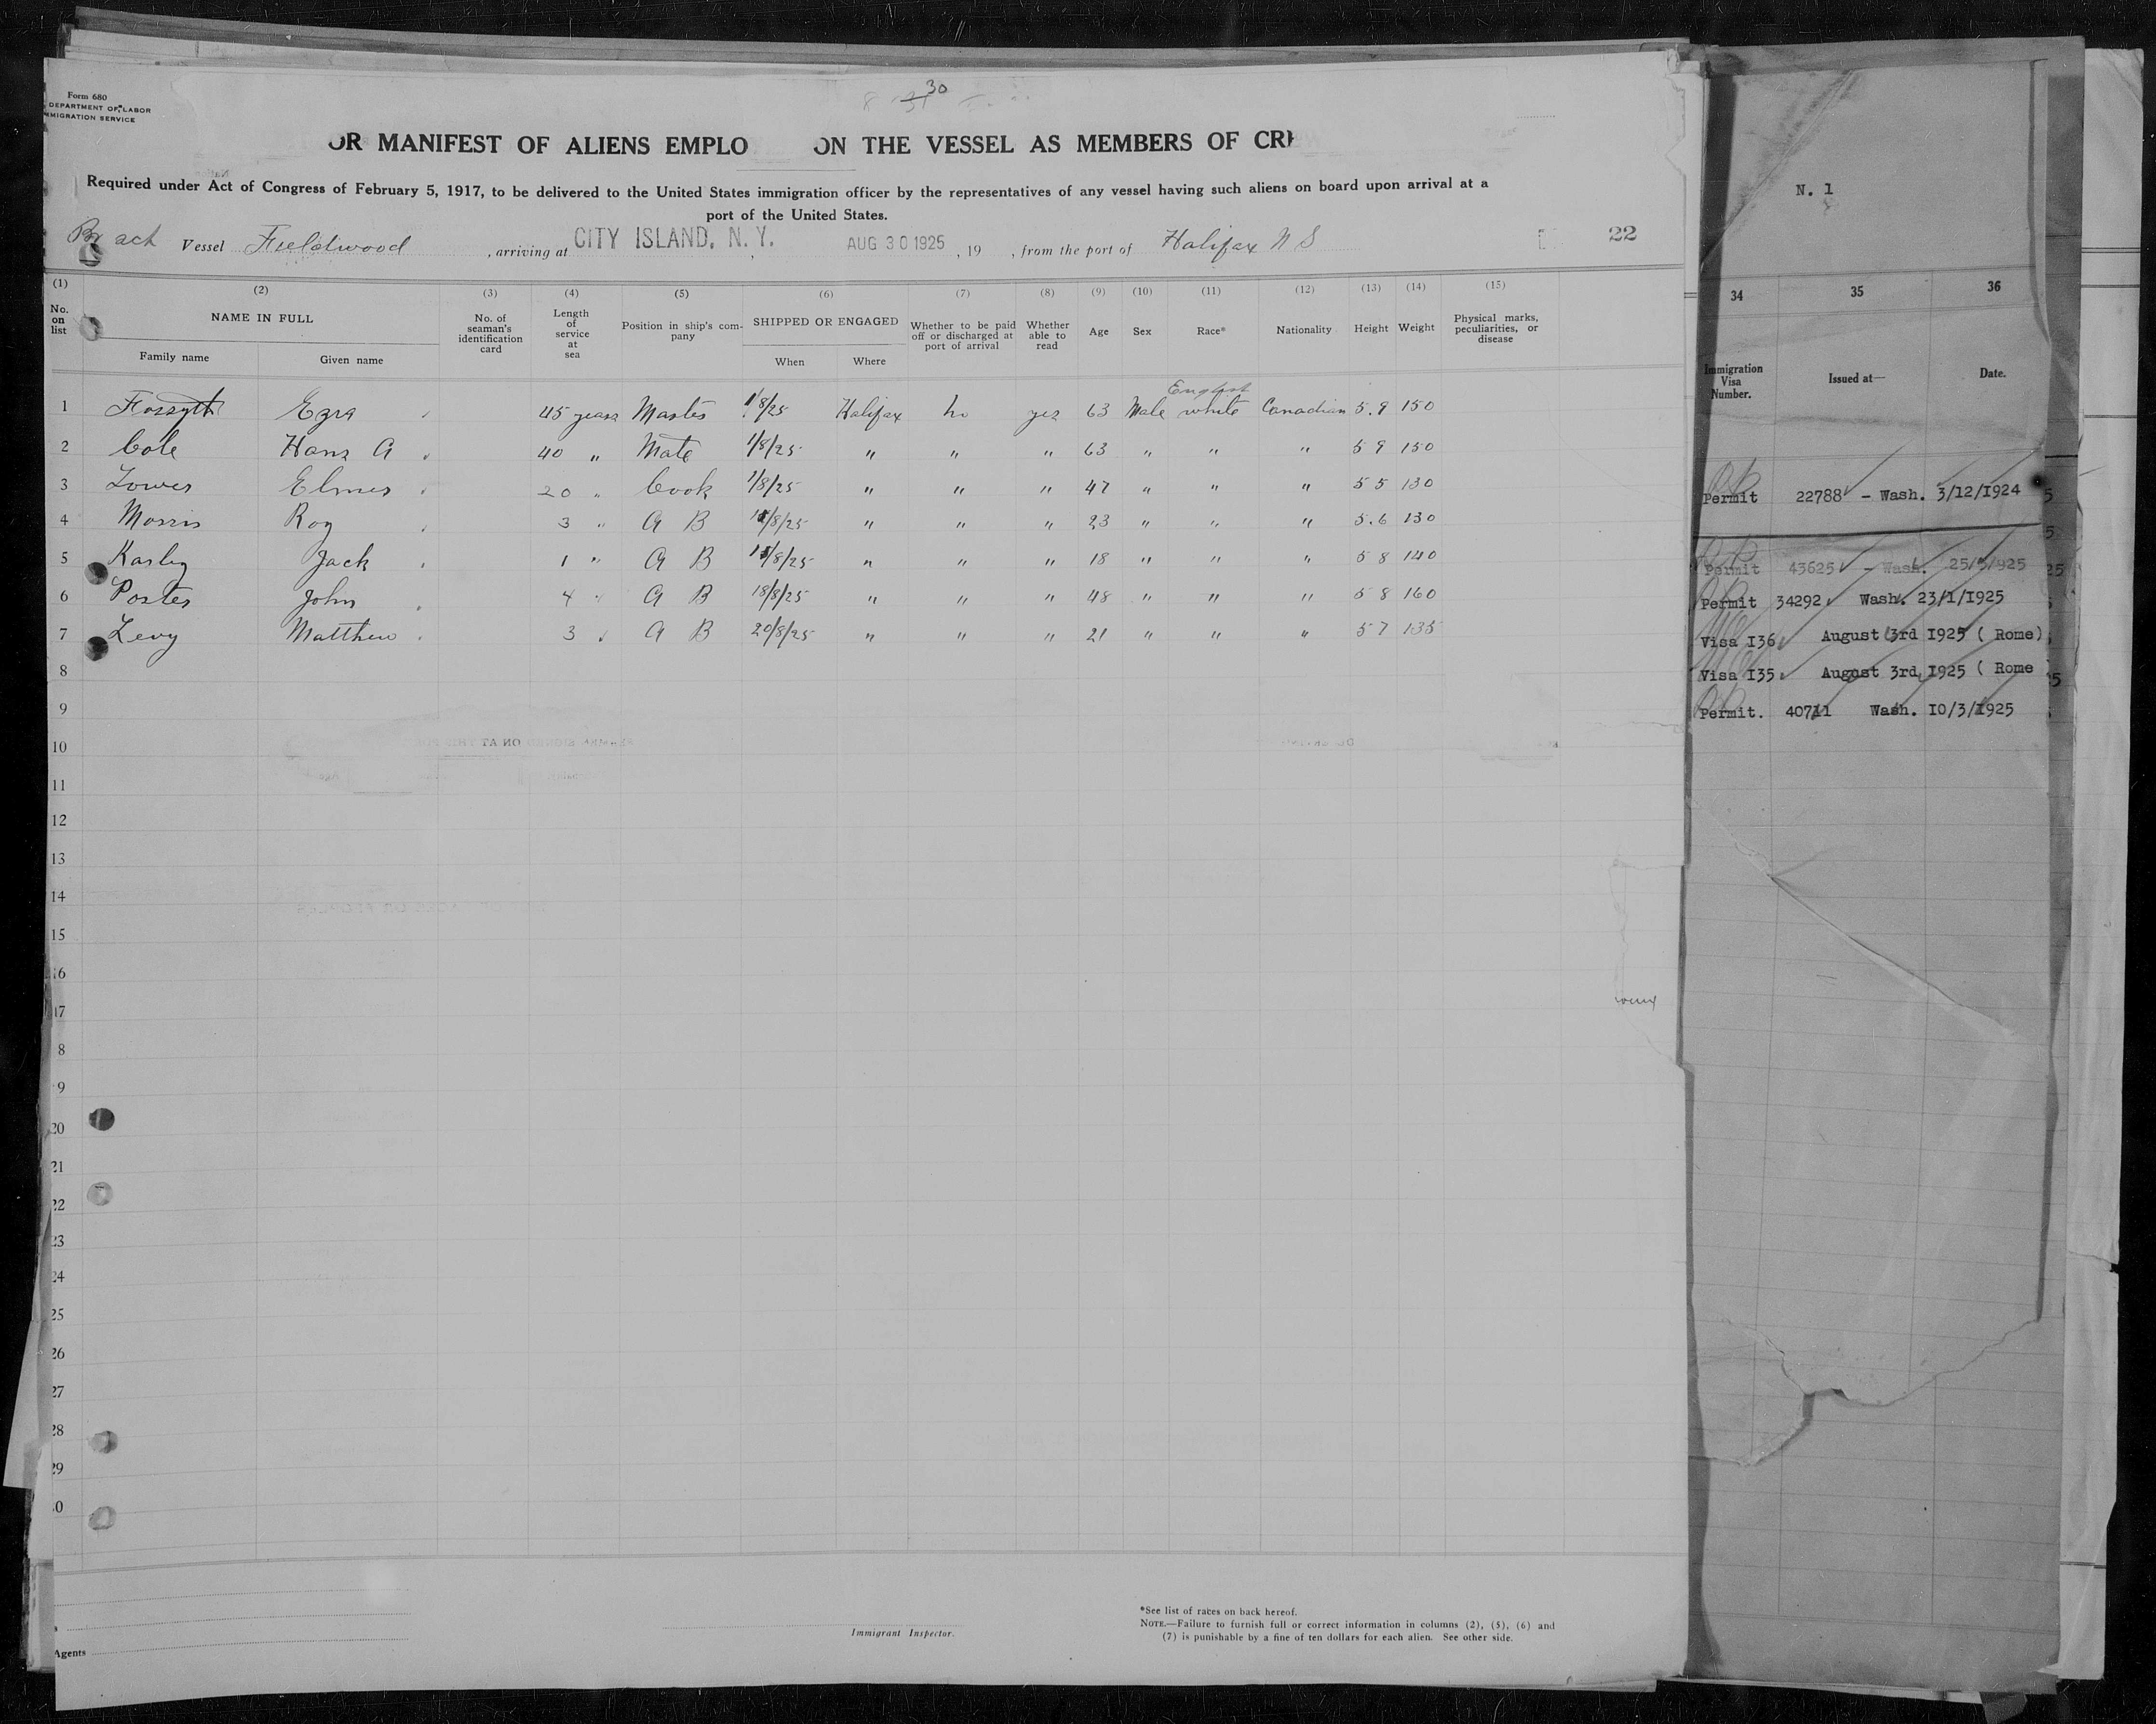 30
Form 680
DEPARTMENT OF LABOR
MMIGRATION SERVICE
OR MANIFEST OF ALIENS EMPLO ON THE VESSEL AS MEMBERS OF CRE
Required under Act of Congress of February 5, 1917, to be delivered to the United States immigration officer by the representatives of any vessel having such aliens on board upon arrival at a
port of the United States.
Br Vessel Fieldwood , arriving at CITY ISLAND, N. Y. AUG 30 1925 , 19 , from the port of Halifax N S 22
(1) (2) (3) (4) (5) (6) (7) (8) (9) (10) (11) (12) (13) (14) (15)
No. on list NAME IN FULL Family name Given name No. of seaman's identification card Length of service at sea Position in ship's company SHIPPED OR ENGAGED When Where Whether to be paid off or discharged at port of arrival Whether able to read Age Sex Race* Nationality Height Weight Physical marks, peculiarities, or disease
English
1 Forsyth Ezra 45 years Master 1/8/25 Halifax no yes 63 Male white Canadian 5.9 150
2 Cole Hans A 40 " Mate 1/8/25 " " " 63 " " " 5 9 150
3 Elmer 20 " Cook 1/8/25 " " " 47 " " " 5 5 130
4 Morris Roy 3 " A B /8/25 " " " 23 " " " 5.6 130
5 Jack 1 " A B /8/25 " " " 18 " " " 5 8 140
6 Porter John 4 " A B 18/8/25 " " " 48 " " " 5 8 160
7 Levy Matthew 3 " A B 20/8/25 " " " 21 " " " 5 7 135
8
9
10
11
12
13
14
15
16
17
8
9
20
21
22
23
24
25
26
27
28
29
0
Agents
Immigrant Inspector.
*See list of races on back hereof.
NOTE.—Failure to furnish full or correct information in columns (2), (5), (6) and
(7) is punishable by a fine of ten dollars for each alien. See other side.
N. 1
34 35 36
Immigration Visa Number. Issued at— Date.
Permit 22788 - Wash. 3/12/1924
Permit 43625 - Wash. 25/5/1925
Permit 34292 Wash. 23/1/1925
Visa I36 August 3rd 1925 ( Rome)
Visa I35 August 3rd 1925 ( Rome
Permit. 40711 Wash. 10/3/1925